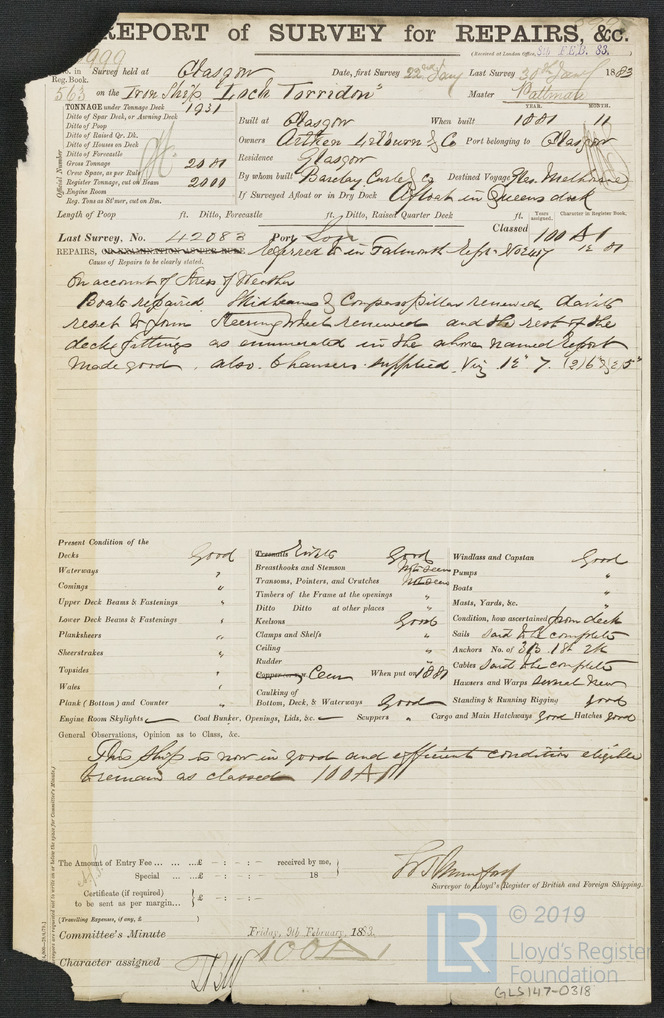 REPORT of SURVEY for REPAIRS, &c.
(Received at London Office, 8th FEB. 83.
No. in Survey held at Glasgow Date, first Survey 22nd Jany Last Survey 30th Jany 1883
Reg. Book.
563 on the Iron Ship "Loch Torridon" Master Pattman
TONNAGE under Tonnage Deck 1931
Ditto of Spar Deck, or Awning Deck
Ditto of Poop
Ditto of Raised Qr. Dk.
Ditto of Houses on Deck
Ditto of Forecastle
Gross Tonnage 2081
Crew Space, as per Rule
Register Tonnage, cut on Beam 2000
Engine Room
Reg. Tons as St'mer, cut on Bm.
Official Number
YEAR. MONTH.
Built at Glasgow When built 1881 11
Owners Aitken Lilburn & Co Port belonging to Glasgow
Residence Glasgow
By whom built Barclay Curle & Co Destined Voyage Melbourne
If Surveyed Afloat or in Dry Dock Afloat in Queens dock
Length of Poop ft. Ditto, Forecastle ft. Ditto, Raised Quarter Deck ft. Years assigned. Character in Register Book.
Last Survey, No. 42083 Port Lon Classed 100 A 1
REPAIRS, OR EXAMINATION AFTER SAME referred to in Falmouth Rept No 2417 12 81
Cause of Repairs to be clearly stated.
On account of Stress of Weather
Boats repaired Skidbeams & Compass Pillar renewed, davits
reset to form Steering wheel renewed and the rest of the
deck fittings as enumerated in the above named Report
made good. also 6 hawsers supplied Viz 12" 7" (2) 6" & (2) 5"
Present Condition of the
Decks Good
Waterways "
Comings "
Upper Deck Beams & Fastenings "
Lower Deck Beams & Fastenings "
Planksheers "
Sheerstrakes "
Topsides "
Wales "
Plank (Bottom) and Counter "
Treenails Rivets Good
Breasthooks and Stemson Not Seen
Transoms, Pointers, and Crutches Not Seen
Timbers of the Frame at the openings "
Ditto Ditto at other places "
Keelsons Good
Clamps and Shelfs "
Ceiling "
Rudder "
Cem When put on 1881
Caulking of
Bottom, Deck, & Waterways Good
Windlass and Capstan Good
Pumps "
Boats "
Masts, Yards, &c. "
Condition, how ascertained from deck
Sails said to be complete
Anchors No. of 3 B. 1 St. 2 K
Cables said to be complete
Hausers and Warps several new
Standing & Running Rigging good
Engine Room Skylights Coal Bunker, Openings, Lids, &c. Scuppers " Cargo and Main Hatchways good Hatches good
General Observations, Opinion as to Class, &c.
This Ship is now in good and efficient condition eligible
to remain as classed 100 A 1
The Amount of Entry Fee ... ... ...£ - : - : - received by me,
Special ... ...£ - : - : - 18
Certificate (if required)
to be sent as per margin... ...£ - : - : -
(Travelling Expenses, if any, £ )
Surveyor to Lloyd's Register of British and Foreign Shipping.
Committee's Minute Friday, 9th February, 1883.
Character assigned 100 A 1
LR
© 2019
Lloyd's Register
Foundation
GLS147-0318